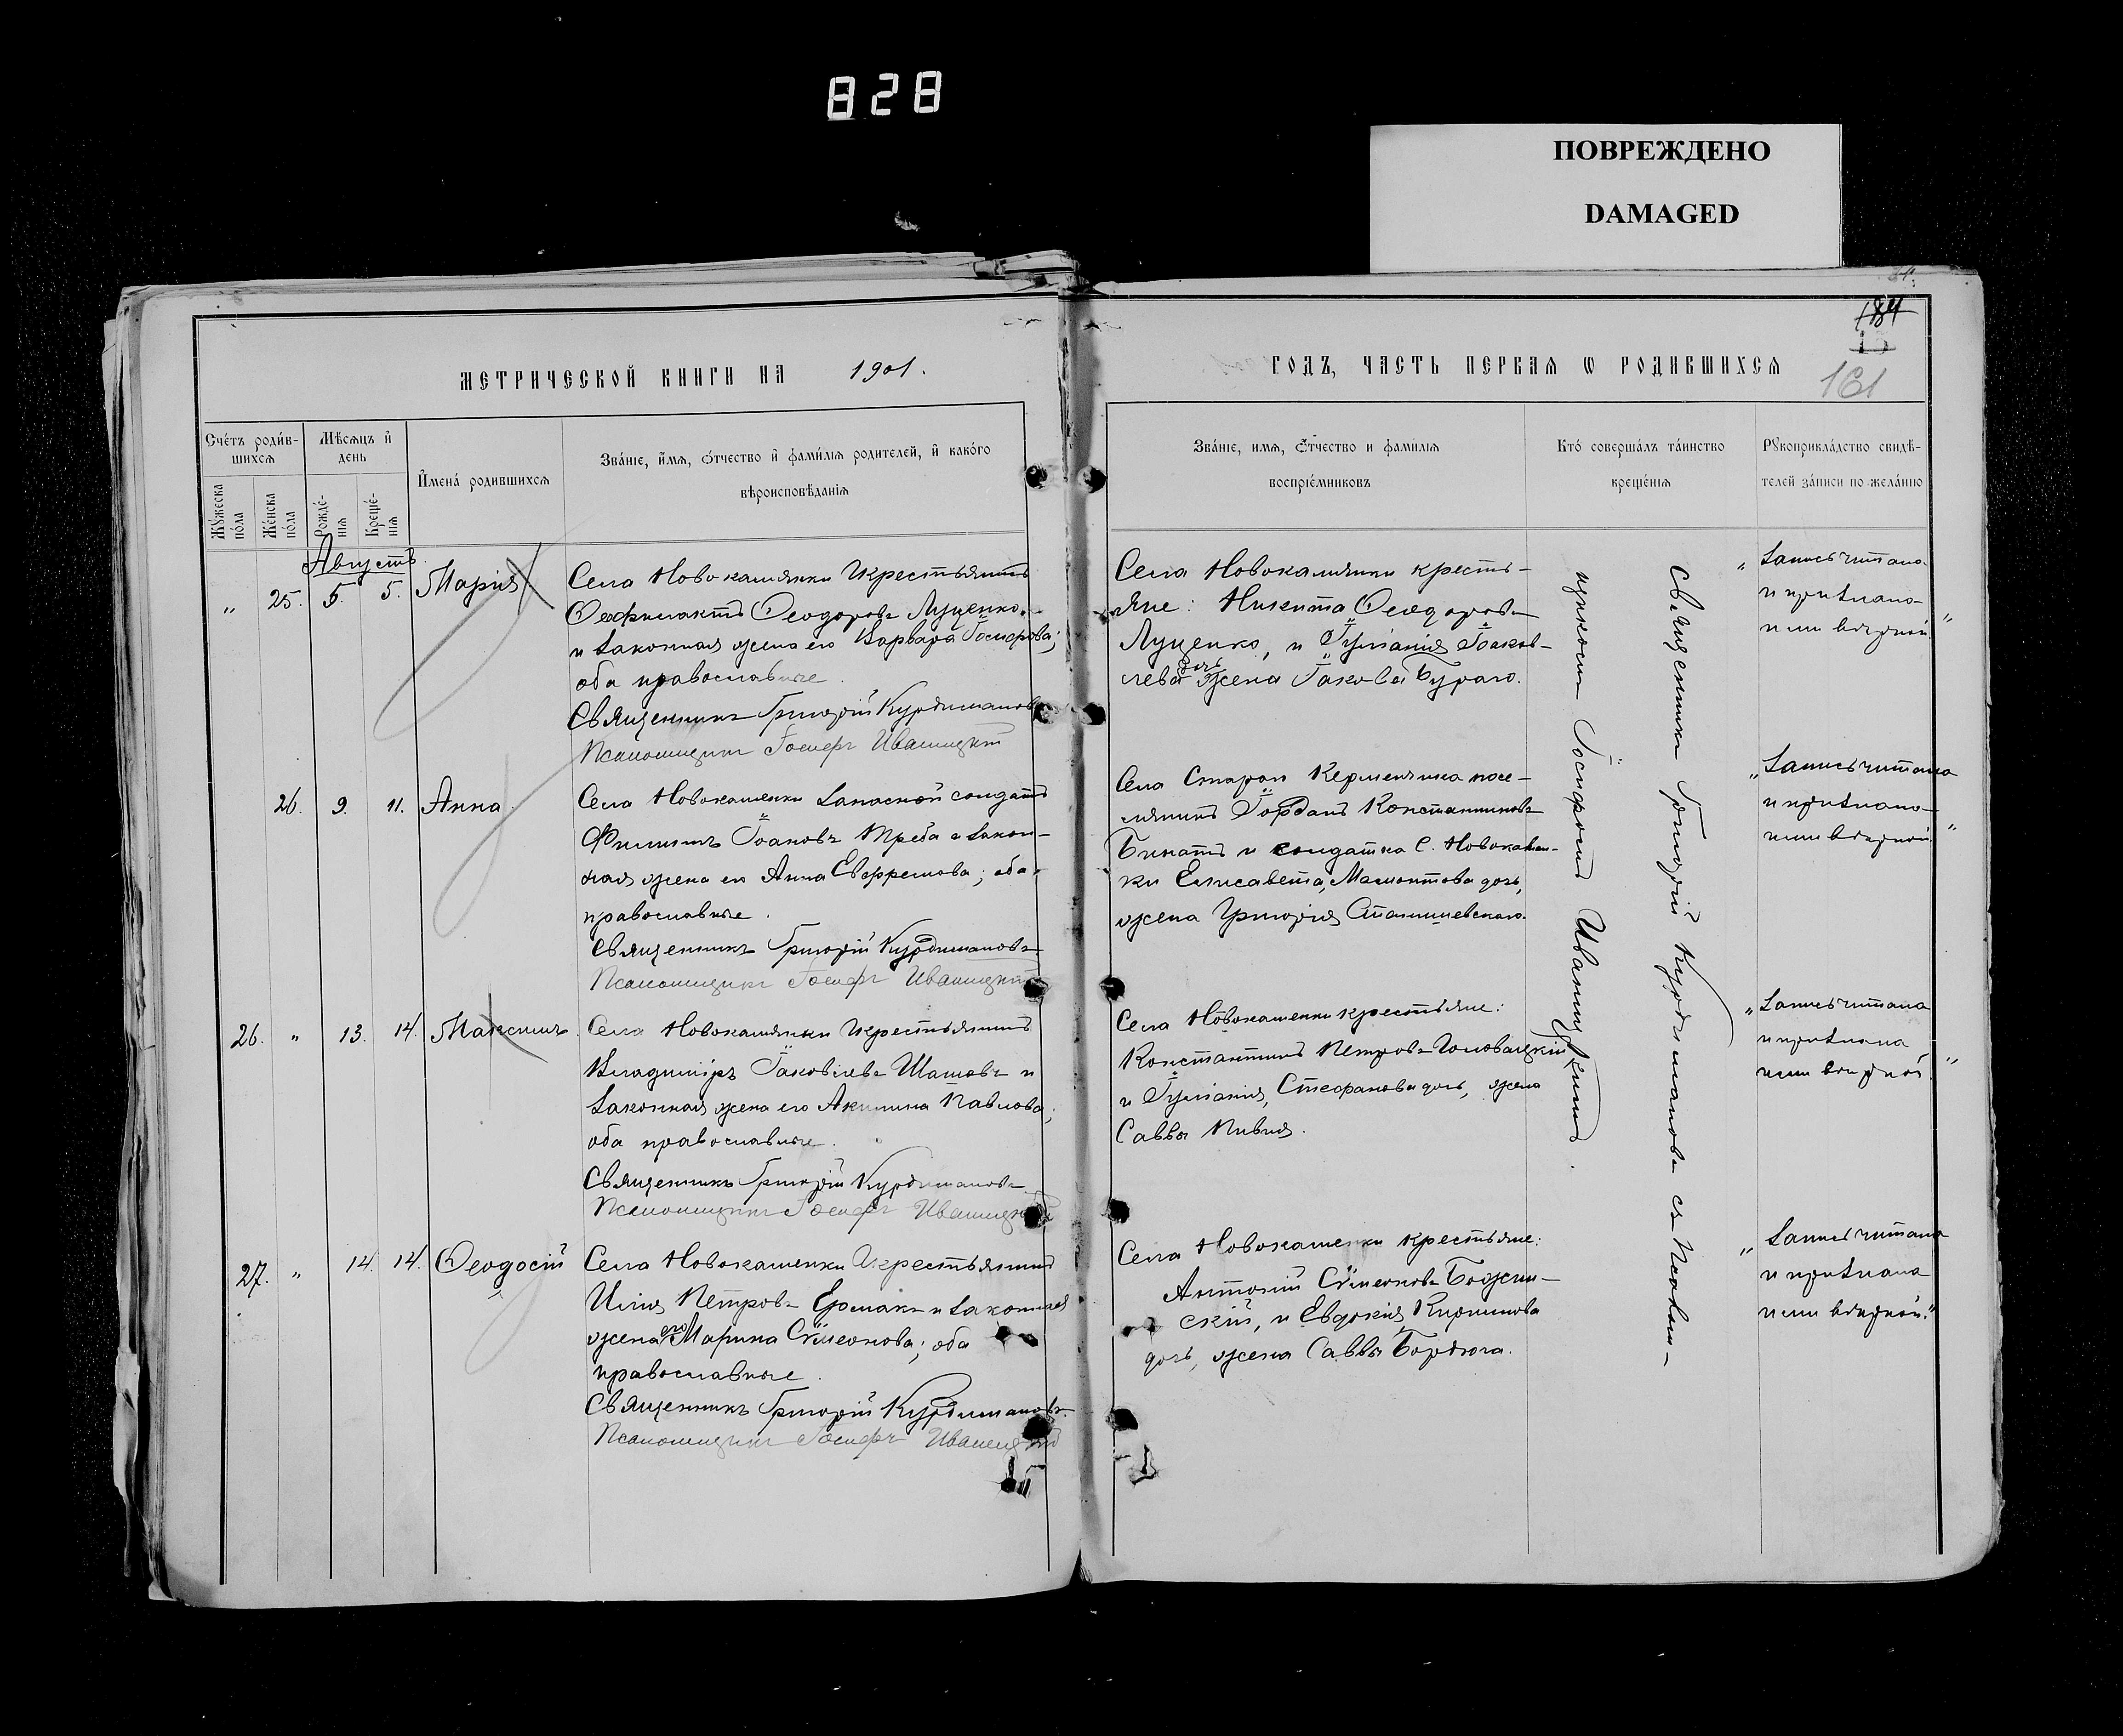 828
ПОВРЕЖДЕНО
DAMAGED
184
161
МЕТРИЧЕСКОЙ КНИГИ НА 1901.
ГОДЪ, ЧАСТЬ ПЕРВАЯ Ѡ РОДИВШИХСЯ
Счетъ родив-
шихся
Мужеска
пола
Женска
пола
Мѣсяцъ и
день
Рожде-
нія
Креще-
нія
Имена родившихся
Званіе, имя, отчество и фамилія родителей, и какого
вѣроисповѣданія
Званіе, имя, отчество и фамилія
воспріемниковъ
Кто совершалъ таинство
крещенія
Рукоприкладство свидѣ-
телей записи по желанію
Августъ
" 25. 5. 5. Марія
Села Новокаменки Крестьянинъ
Феофилактъ Феодоровъ Луценко
и законная жена его Варвара Іосифова;
оба православные.
Священникъ Григорій Курдимановъ
Псаломщикъ Іосифъ Иваницкій
Села Новокаменки кресть-
яне: Никита Феодоровъ
Луценко, и Іуліанія Іаков-
лева дочь жена Іакова Бураго.
"Запись читана
и признана
ими вѣрной"
26. 9. 11. Анна
Села Новокаменки Запасной солдатъ
Филиппъ Іоановъ Треба и закон-
ная жена его Анна Евфремова; оба
православные.
Священникъ Григорій Курдимановъ
Псаломщикъ Іосифъ Иваницкій
Села Стараго Керменчика посе-
лянинъ Іорданъ Константиновъ
Бинатъ и солдатка с. Новокамен-
ки Елисавета, Мамонтова дочь,
жена Григорія Станишевскаго.
"Запись читана
и признана
ими вѣрной"
26. " 13. 14. Максимъ.
Села Новокаменки Крестьянинъ
Владиміръ Іаковлевъ Шамовъ и
законная жена его Акилина Павлова;
оба православные.
Священникъ Григорій Курдимановъ
Псаломщикъ Іосифъ Иваницкій
Села Новокаменки крестьяне:
Константинъ Петровъ Головацкій
и Іуліанія, Стефанова дочь, жена
Саввы Пивня.
"Запись читана
и признана
ими вѣрной"
27. " 14. 14. Феодосій
Села Новокаменки Крестьянинъ
Илія Петровъ Ермакъ и законная
жена его Марина Сѵмеонова; оба
православные.
Священникъ Григорій Курдимановъ
Псаломщикъ Іосифъ Иваницкій
Села Новокаменки крестьяне:
Антоній Сѵмеоновъ Божин-
скій, и Евдокія Кириллова
дочь, жена Саввы Бордюга.
"Запись читана
и признана
ими вѣрной."
Священникъ Григорій Курдимановъ съ Псалом-
щикомъ Іосифомъ Иваницкимъ.